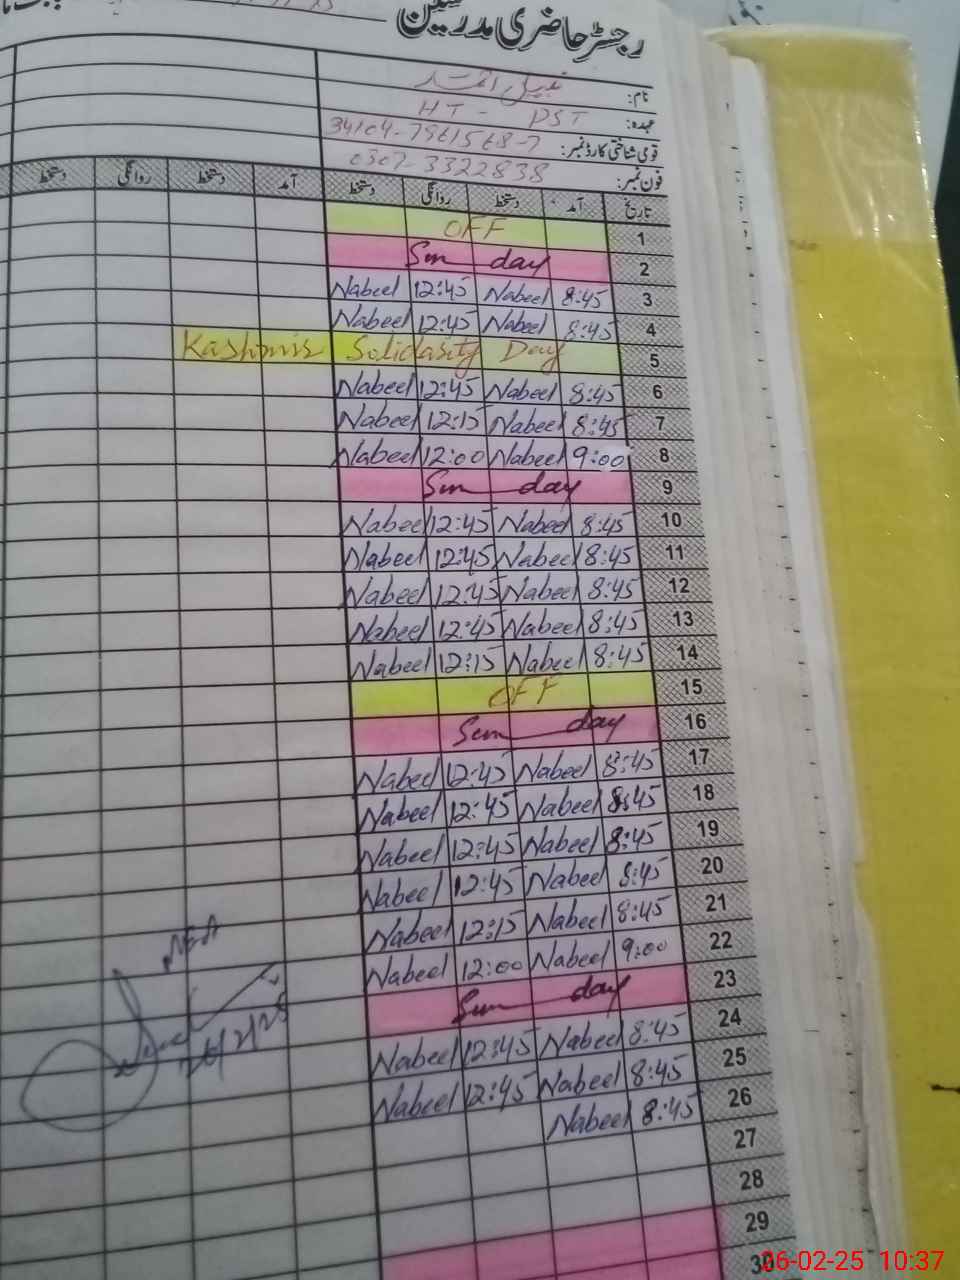 رجسٹر حاضری مدرسین
نام: نبیل احمد
عہدہ: HT - PST
قومی شناختی کارڈ نمبر: 34104-7961568-7
فون نمبر: 0307-3322838
تاریخ آمد دستخط روانگی دستخط آمد دستخط روانگی دستخط
1 OFF
2 Sun day
3 8:45 Nabeel 12:45 Nabeel
4 8:45 Nabeel 12:45 Nabeel
5 Kashmir Solidarity Day
6 8:45 Nabeel 12:45 Nabeel
7 8:45 Nabeel 12:15 Nabeel
8 9:00 Nabeel 12:00 Nabeel
9 Sun day
10 8:45 Nabeel 12:45 Nabeel
11 8:45 Nabeel 12:45 Nabeel
12 8:45 Nabeel 12:45 Nabeel
13 8:45 Nabeel 12:45 Nabeel
14 8:45 Nabeel 12:15 Nabeel
15 OFF
16 Sun day
17 8:45 Nabeel 12:45 Nabeel
18 8:45 Nabeel 12:45 Nabeel
19 8:45 Nabeel 12:45 Nabeel
20 8:45 Nabeel 12:45 Nabeel
21 8:45 Nabeel 12:15 Nabeel
22 9:00 Nabeel 12:00 Nabeel
23 Sun day
24 8:45 Nabeel 12:45 Nabeel
25 8:45 Nabeel 12:45 Nabeel
26 8:45 Nabeel
27
28
29
30
26/2/25
26-02-25 10:37